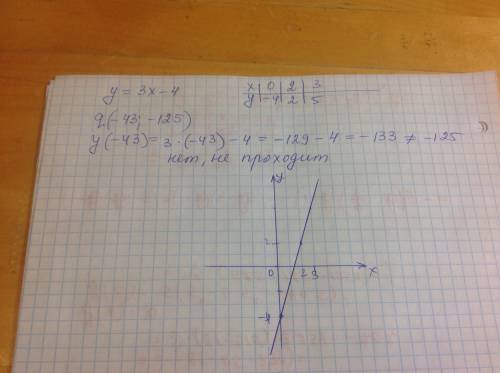 y = 3x - 4
x | 0 | 2 | 3
y | -4 | 2 | 5
q(-43; -125)
y(-43) = 3 · (-43) - 4 = -129 - 4 = -133 ≠ -125
нет, не проходит
y
2
0 2 3 x
-4